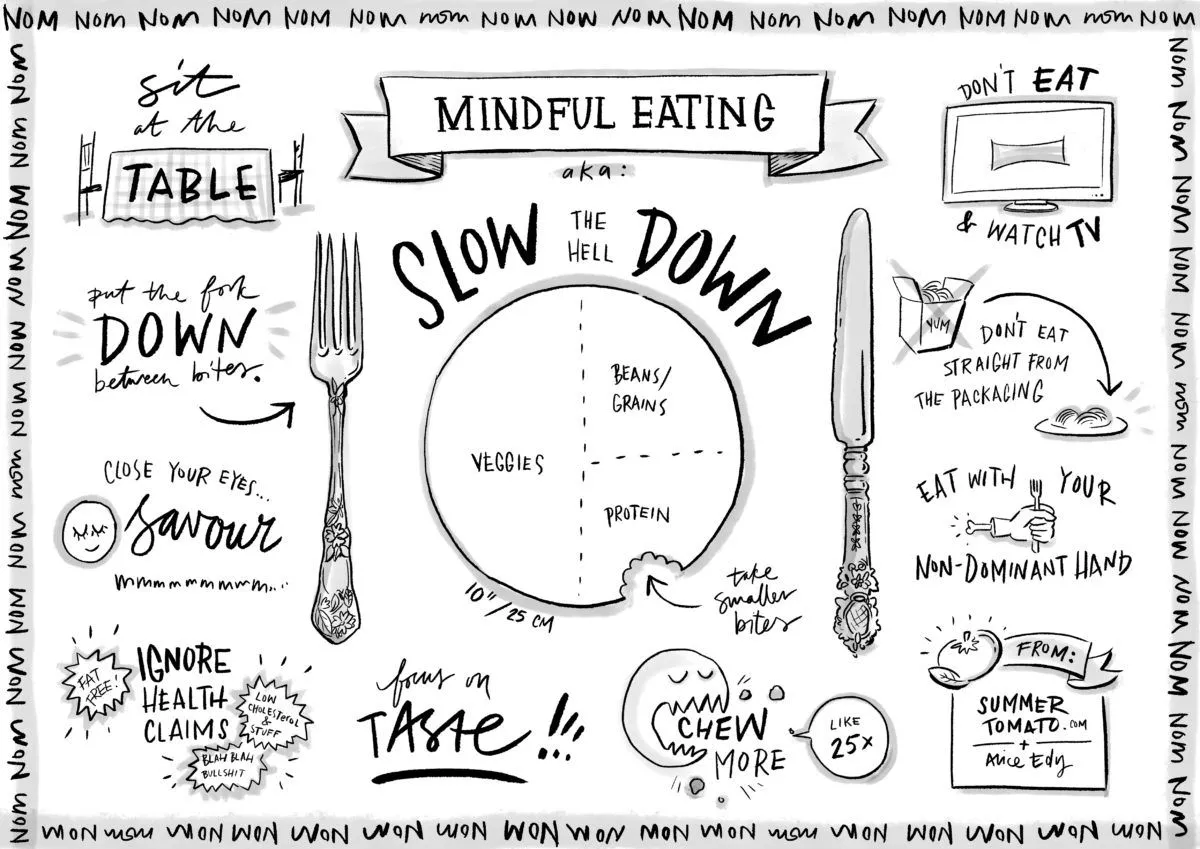 NOM Nom Nom Nom NOM NOM nom NOM NOW NOM NOM Nom NOM NOM NOM NOM nom NOM
MINDFUL EATING
aka:
SLOW THE HELL DOWN
sit
at the
TABLE
put the fork
DOWN
between bites.
CLOSE YOUR EYES...
savour
mmmmmmmmm...
IGNORE
HEALTH
CLAIMS
FAT
FREE!
LOW
CHOLESTEROL
&
STUFF
BLAH BLAH
BULLSHIT
VEGGIES
BEANS/
GRAINS
PROTEIN
10"/25 CM
take
smaller
bites
focus on
TASTE!!!
CHEW
MORE
LIKE
25x
DON'T EAT
& WATCH TV
YUM
DON'T EAT
STRAIGHT FROM
THE PACKAGING
EAT WITH YOUR
NON-DOMINANT HAND
FROM:
SUMMER
TOMATO.COM
+
Alice Edy
Nom Nom NOM Nom NOM NOM nom NOM NOM NOM NOM Nom
Nom Nom Nom NOM NOM nom NOM NOM NOM NOM NOM Nom
NOM nom NOM NOM NOM NOM NOM NOM NOM NOM NOM nom NOM NOM NOM NOM NOM